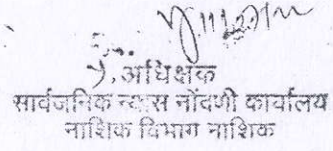 अधिक्षक
सार्वजनिक न्यास नोंदणी कार्यालय
नाशिक विभाग नाशिक